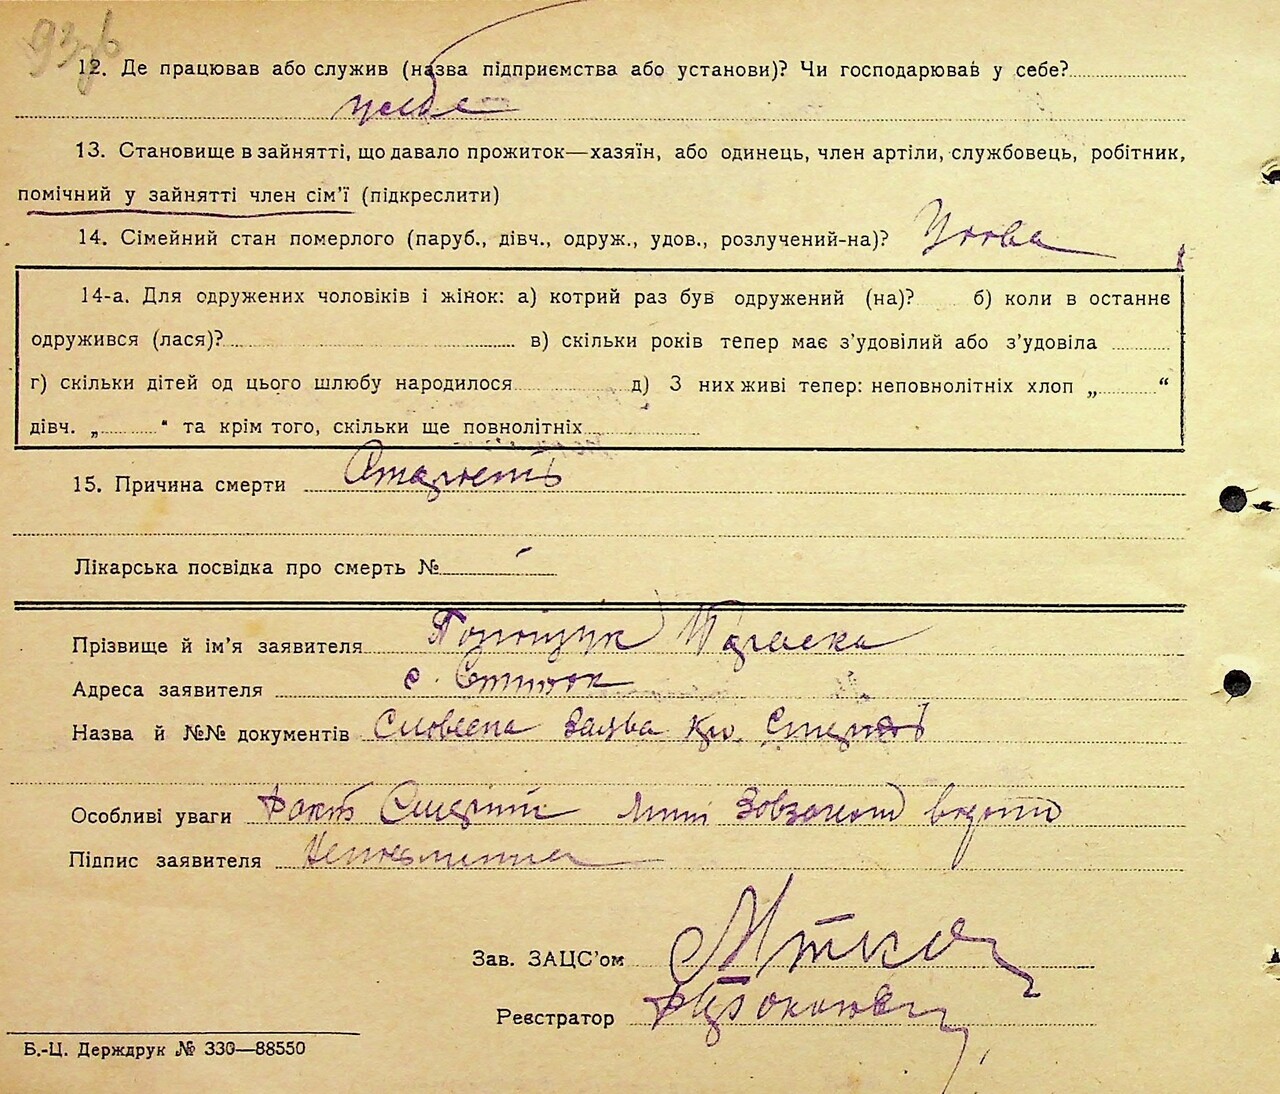 93зв
12. Де працював або служив (назва підприємства або установи)? Чи господарював у себе?
у себе
13. Становище в зайнятті, що давало прожиток—хазяїн, або одинець, член артіли, службовець, робітник,
помічний у зайнятті член сім'ї (підкреслити)
14. Сімейний стан померлого (паруб., дівч., одруж., удов., розлучений-на)? Удова
14-а. Для одружених чоловіків і жінок: а) котрий раз був одружений (на)? б) коли в останнє
одружився (лася)? в) скільки років тепер має з'удовілий або з'удовіла
г) скільки дітей од цього шлюбу народилося д) З них живі тепер: неповнолітніх хлоп „ “
дівч. „ “ та крім того, скільки ще повнолітніх
15. Причина смерти Старість
Лікарська посвідка про смерть № -
Прізвище й ім'я заявителя Поліщук Параска
Адреса заявителя с.
Назва й №№ документів Словесна Заява про Смерть
Особливі уваги Факт Смерти мені відомо
Підпис заявителя Неписьменна
Зав. ЗАЦС'ом
Реєстратор
Б.-Ц. Держдрук № 330—88550